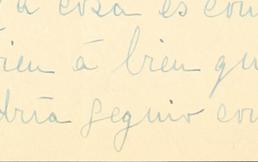 a cosa es con
bien á bien qu
dría seguir con